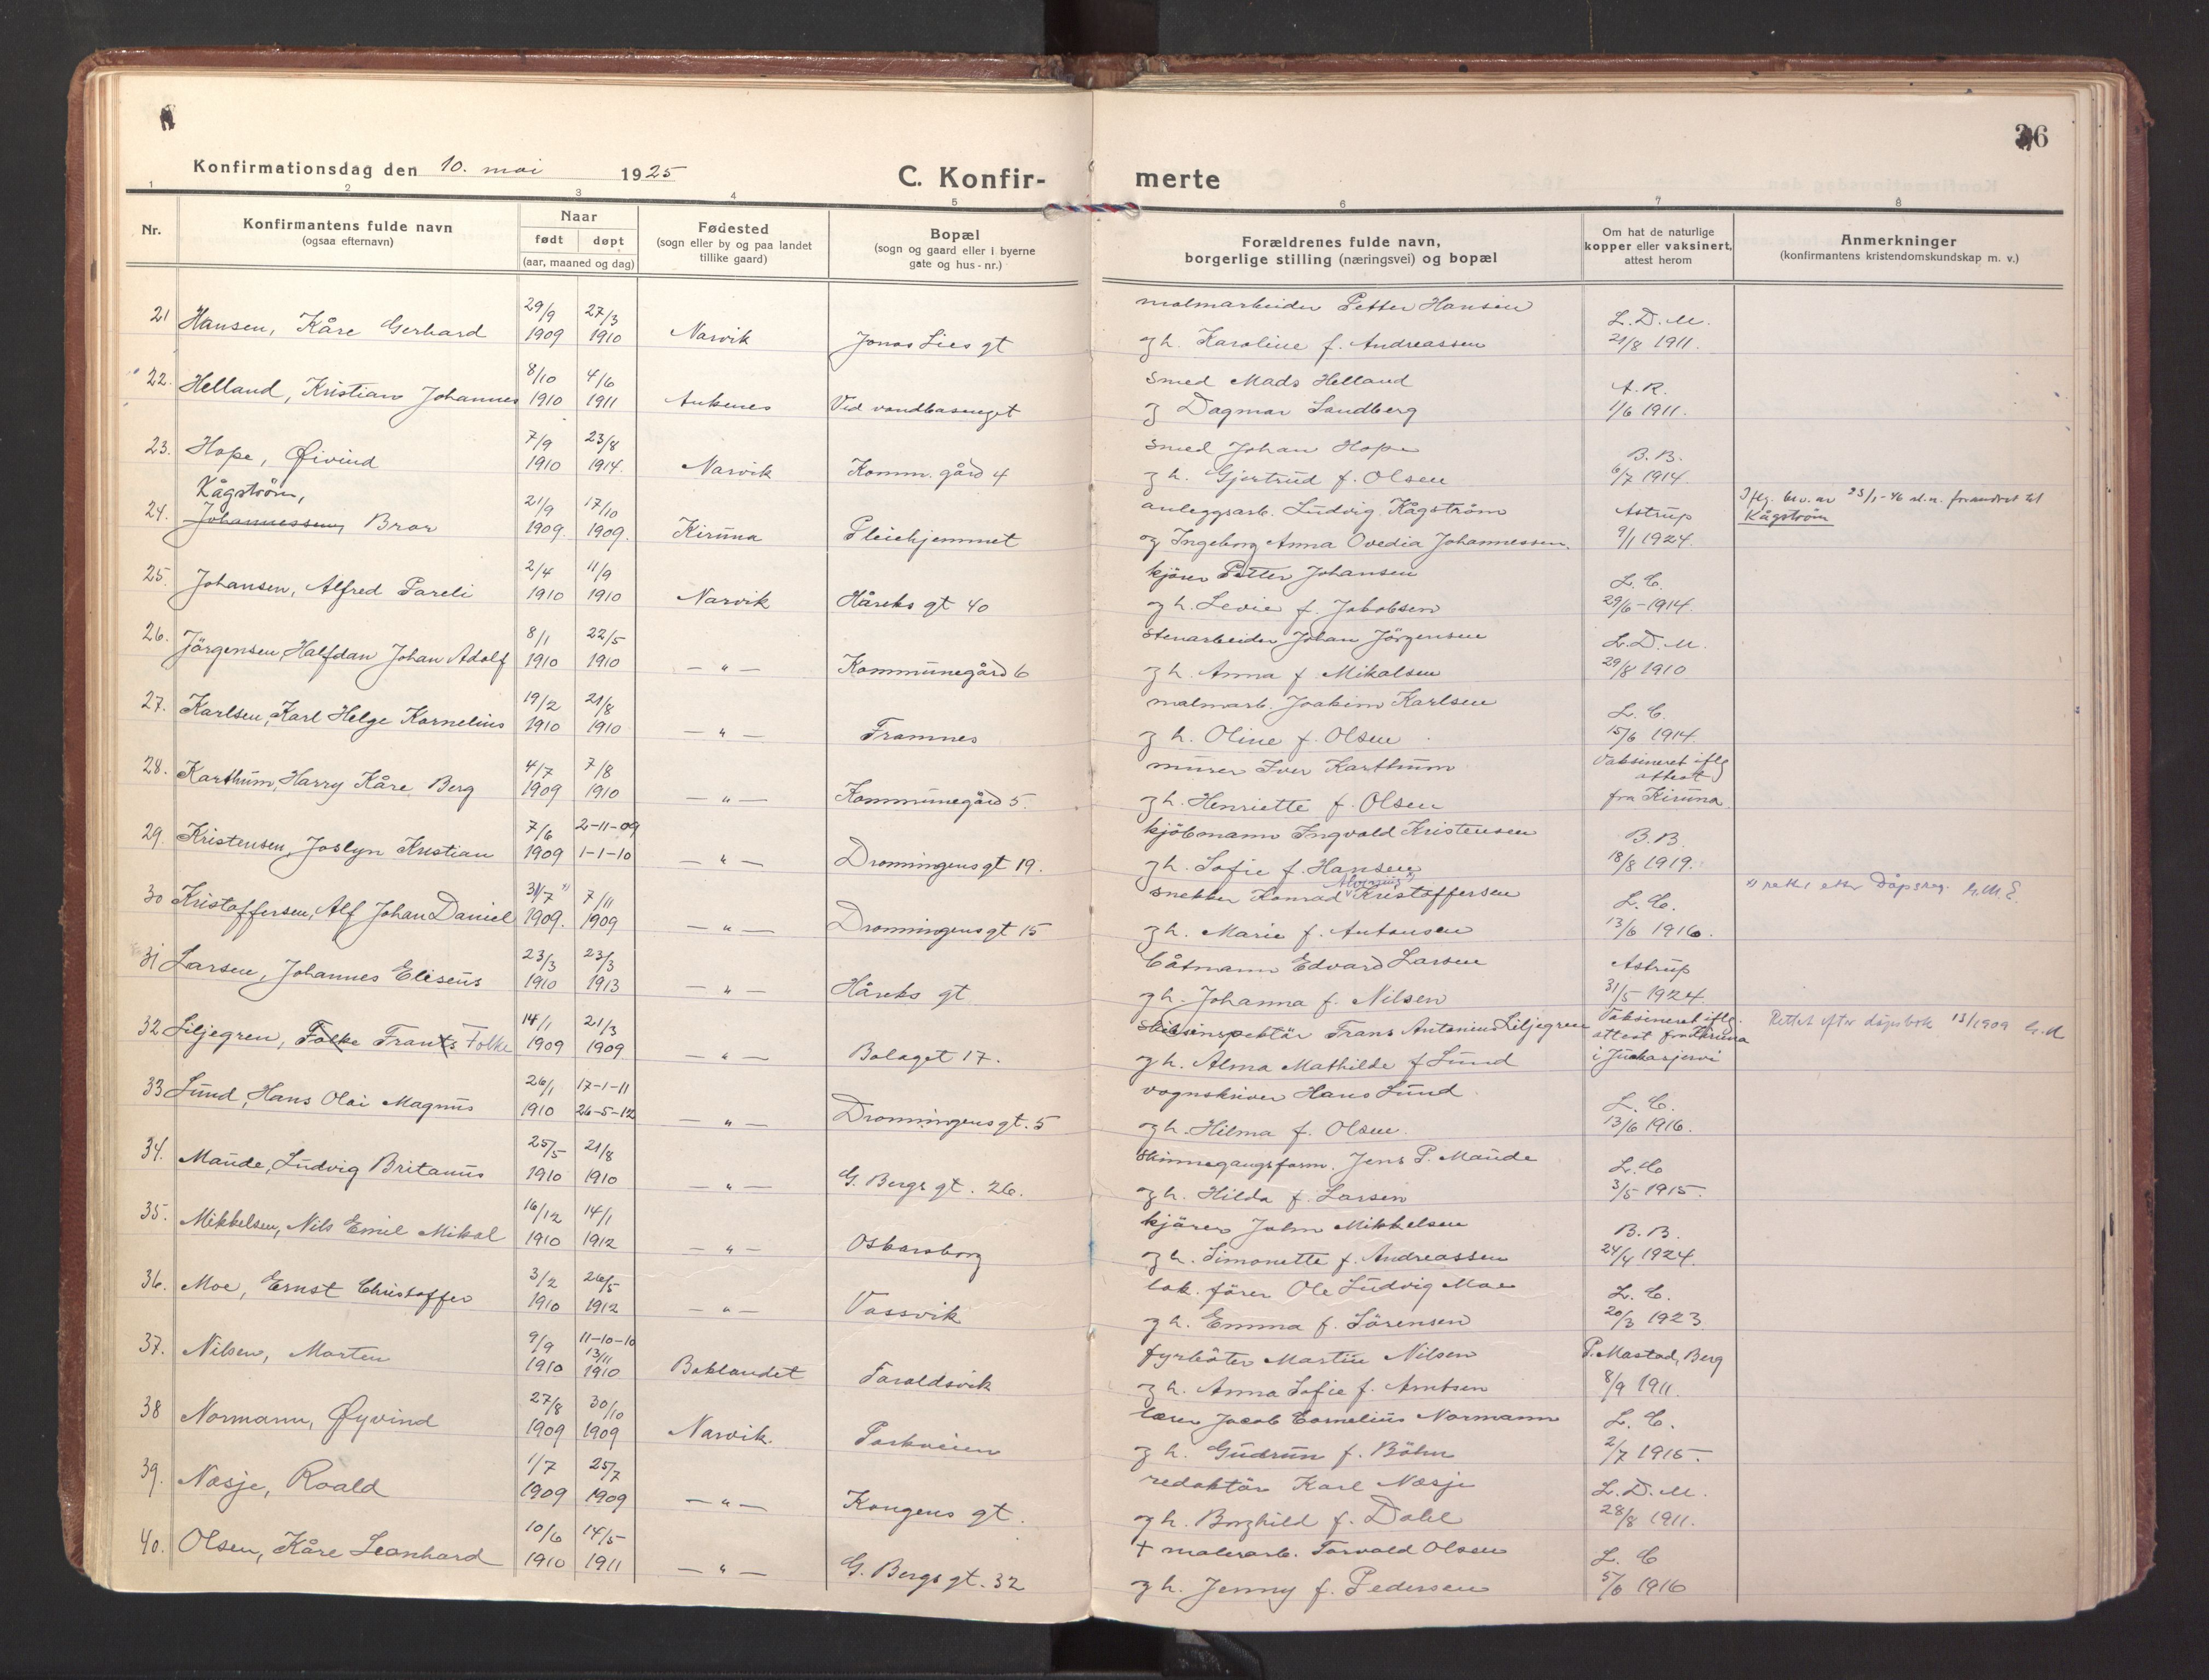 36
Konfirmationsdag den 10. mai 1925
C. Konfir- merte
1 2 3 4 5 6 7 8
Nr.
Konfirmantens fulde navn
(ogsaa efternavn)
Naar
født døpt
(aar, maaned og dag)
Fødested
(sogn eller by og paa landet
tillike gaard)
Bopæl
(sogn og gaard eller i byerne
gate og hus-nr.)
Forældrenes fulde navn,
borgerlige stilling (næringsvei) og bopæl
Om hat de naturlige
kopper eller vaksinert,
attest herom
Anmerkninger
(konfirmantens kristendomskundskap m. v.)
21 Hansen, Kåre Gerhard 29/9 1909 27/3 1910 Narvik Jonas Lies gt malmarbeider Petter Hansen
og h. Karoline f. Andreassen L.D.M. 21/8 1911.
22. Helland, Kristian Johannes 8/10 1910 4/6 1911 Ankenes Ved vandbasenget smed Mads Helland
og Dagmar Sandberg A.R. 1/6 1911.
23. Hope, Øivind 7/9 1910 23/8 1914. Narvik Komm. gård 4 smed Johan Hope
og h. Gjertrud f. Olsen B.B. 6/7 1914.
Kågstrøm,
24. Johannessen, Bror 21/9 1909. 17/10 1909. Kiruna Pleiehjemmet anleggsarb. Ludvig Kågström
og Ingeborg Anna Ovedia Johannessen. Astrup 9/1 1924. Iflg. bev. av 25/1-46 sl.n. forandret til
Kågstrøm
25. Johansen, Alfred Pareli 2/4 1910 11/9 1910 Narvik Håreks gt 40 kjører Petter Johansen
og h. Levie f. Jakobsen L.C. 29/6-1914.
26. Jörgensen, Halfdan Johan Adolf 8/1 1910 22/5 1910 — " — Kommunegård 6 stenarbeider Johan Jörgensen
og h. Anna f. Mikalsen L.D.M. 29/8 1910
27. Karlsen, Karl Helge Kornelius 19/2 1910 21/8 1910 — " — Framnes malmarb. Joakim Karlsen
og h. Oline f. Olsen L.C. 15/6 1914.
28. Karthum, Harry Kåre Berg 4/7 1909 7/8 1910 — " — Kommunegård 5. murer Iver Karthum
og h. Henriette f. Olsen Vaksineret iflg attest
fra Kiruna.
29. Kristensen, Joslyn Kristian 7/6 1909 2-11-09 1-1-10 — " — Dronningensgt 19. kjöbmann Ingvald Kristensen
og h. Sofie f. Hansen B.B. 18/8 1919.
30 Kristoffersen, Alf Johan Daniel 31/7 1) 1909. 7/11 1909 — " — Dronningensgt 15 snekker Konrad Kristoffersen
og h. Marie f. Antonsen L.C. 13/6 1916. 1) rettet etter Dåpsreg. G.M.E.
31 Larsen, Johannes Eliseus 23/3 1910 23/3 1913 — " — Håreks gt båtmann Edvard Larsen
og h. Johanna f. Nilsen Astrup 31/5 1924.
32 Liljegren, Folke Frants Folke 14/1 1909 21/3 1909 — " — Bolaget 17. skibsinspektör Frans Antonius Liljegren
og h. Alma Mathilde f Lund Vaksineret iflg.
attest fra Kiruna
i Juckasjervi Rettet efter dåpsbok 13/1909 G.M
33 Lund, Hans Olai Magnus 26/1 1910 17-1-11 26-5-12 — " — Dronningensgt. 5 vognskriver Hans Lund
og h. Hilma f. Olsen. L.C. 13/6 1916.
34. Maude, Ludvig Britanus 25/5 1910 21/8 1910 — " — G. Bergs gt. 26. skinnegangsform. Jens P. Maude
og h. Hilda f. Larsen L.C 3/5 1915.
35. Mikkelsen, Nils Emil Mikal 16/12 1910 14/1 1912 — " — Oskarsborg kjörer John Mikkelsen
og h. Simonette f. Andreassen B.B. 24/4 1924.
36. Moe, Ernst Christoffer 3/2 1910 26/5 1912 — " — Vassvik lok. förer Ole Ludvig Moe
og h. Emma f. Sörensen L.C. 20/3 1923
37. Nilsen, Morten 9/9 1910 11-10-10 13/11 1910 Baklandet Taraldsvik fyrböter Martin Nilsen
og h. Anna Sofie f. Arntsen P. Mastad, Berg 8/9 1911.
38 Normann, Øyvind 27/8 1909 30/10 1909 Narvik. Parkveien lærer Jacob Cornelius Normann
og h. Gudrun f. Böhn L.C. 2/7 1915.
39. Næsje, Roald 1/7 1909 25/7 1909 — " — Kongens gt. redaktör Karl Næsje
og h. Borghild f. Dahl L.D.M. 28/8 1911.
40. Olsen, Kåre Leonhard 10/6 1910 14/5 1911 — " — G. Bergs gt. 32 + malerarb. Torvald Olsen
og h. Jenny f. Pedersen L. C 5/6 1916